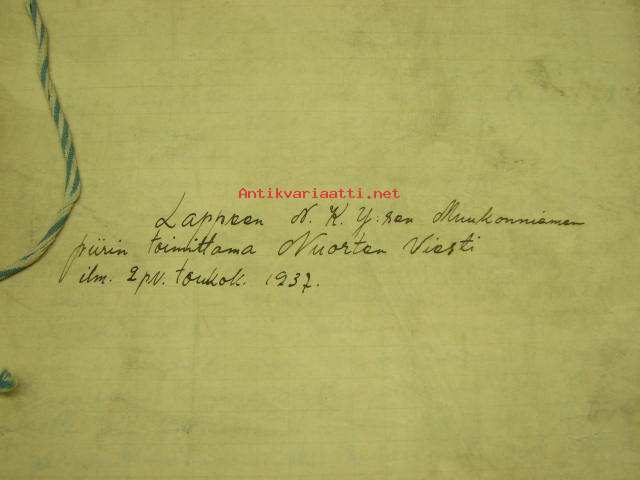 Antikvariaatti.net
Lappeen N. K. Y:sen Muukonniemen
piirin toimittama Nuorten Viesti
ilm. 2 pv. toukok. 1937.